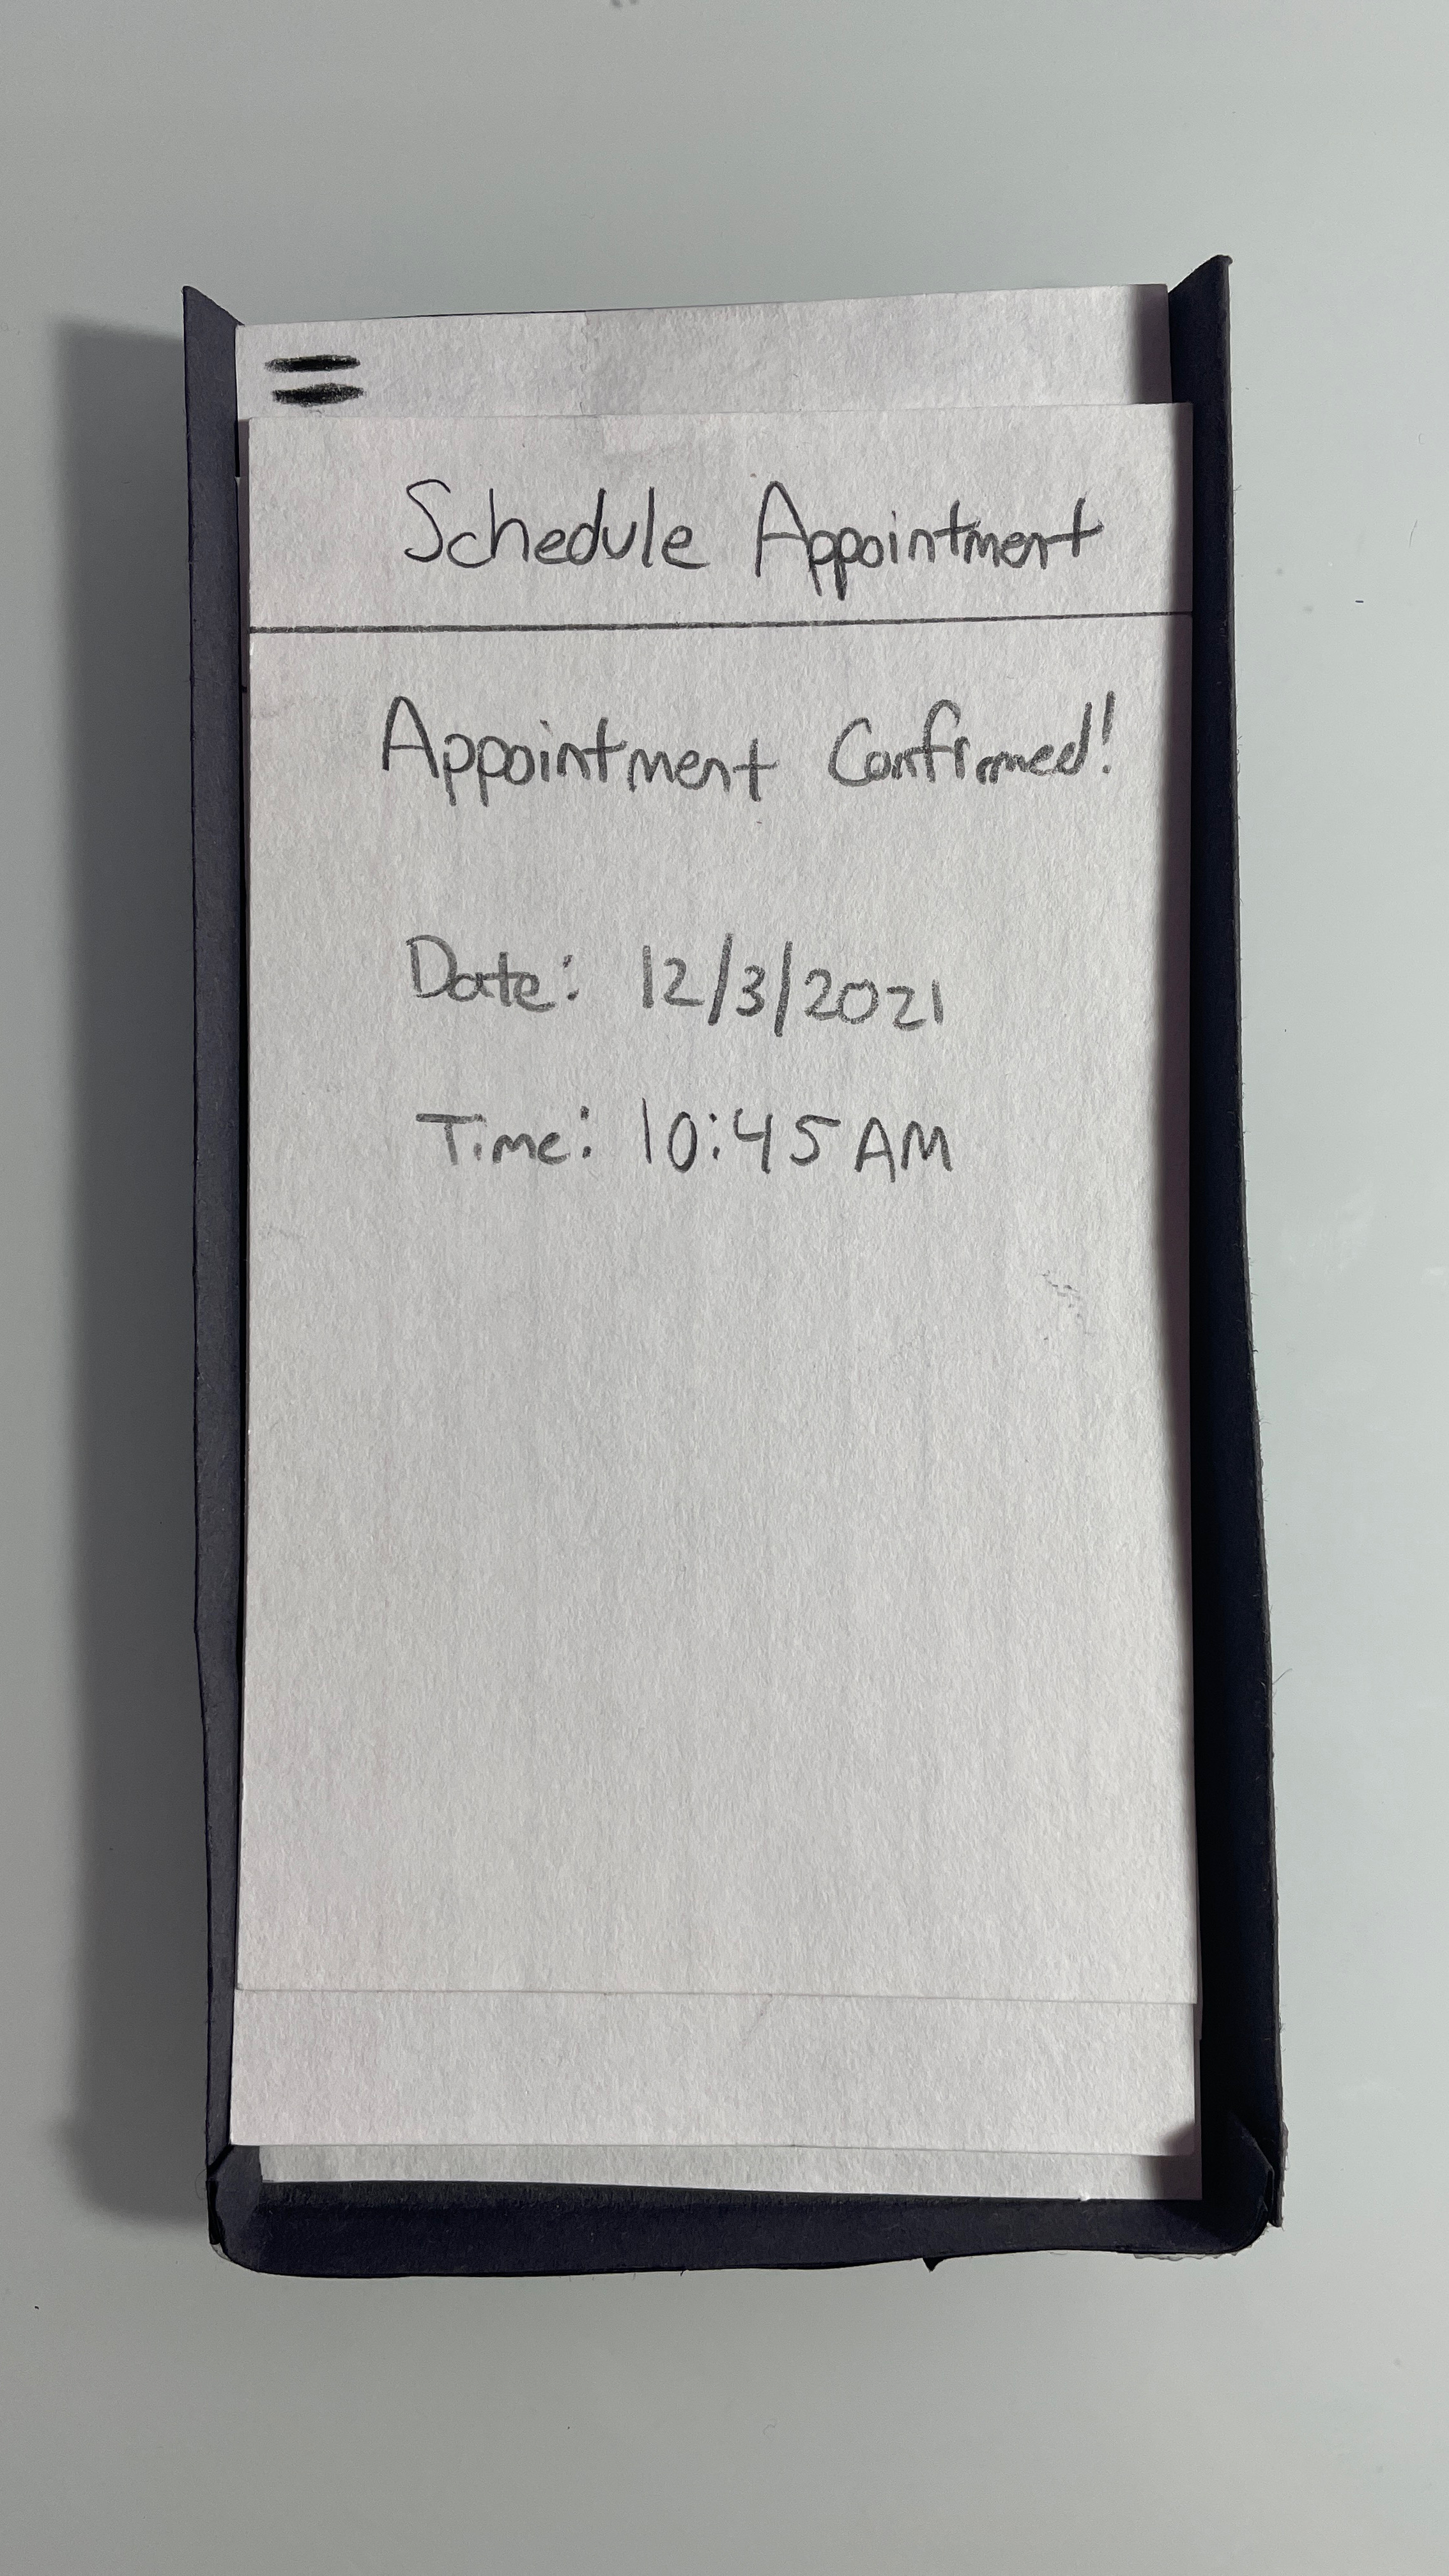 Schedule Appointment
Appointment Confirmed!
Date: 12/3/2021
Time: 10:45 AM